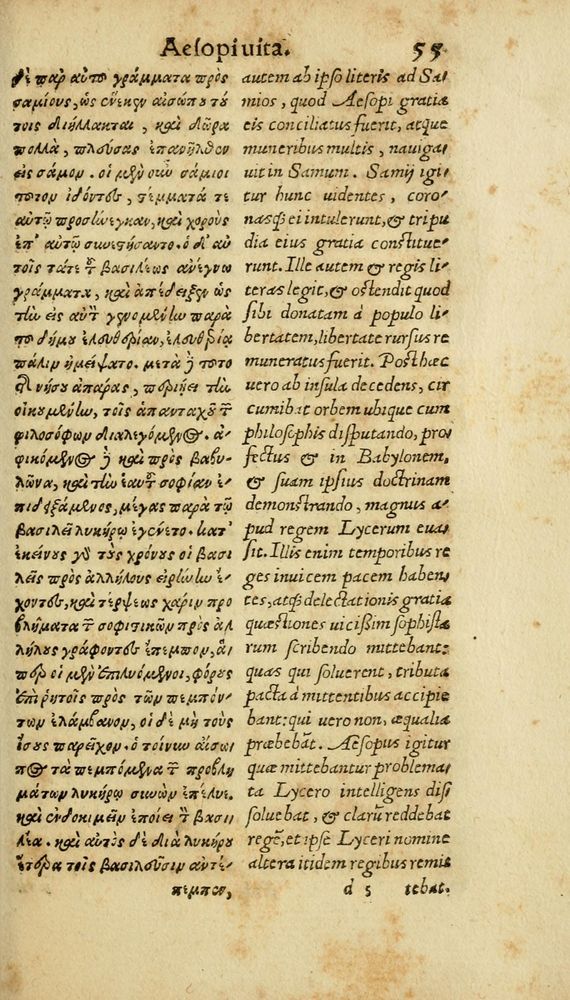 Aesopi uita. 55
δὲ παρ' αὐτοῦ γράμματα πρὸς
σαμίους, ὡς ἕνεκεν αἰσώπου τού
τοις διήλλακται, καὶ δῶρα
πολλὰ, πλεύσας ἐπανῆλθεν
εἰς σάμον. οἱ μὲν οὖν σάμιοι
τοῦτον ἰδόντες, στέμματά τε
αὐτῷ προσήνεγκαν, καὶ χοροὺς
ἐπ' αὐτῷ συνεστήσαντο. ὁ δ' αὐ
τοῖς τά τε τοῦ βασιλέως ἀνέγνω
γράμματα, καὶ ἀπέδειξεν ὡς
τὴν εἰς αὐτὸν γενομένην παρὰ
τοῦ δήμου ἐλευθερίαν, ἐλευθερίᾳ
πάλιν ἠμείψατο. μετὰ δὲ τοῦτο
τῆς νήσου ἀπάρας, περιῄει τὴν
οἰκουμένην, τοῖς ἁπανταχοῦ τῶν
φιλοσόφων διαλεγόμενος. ἀ-
φικόμενος δὲ καὶ πρὸς βαβυ-
λῶνα, καὶ τὴν ἑαυτοῦ σοφίαν ἐ-
πιδειξάμενος, μέγας παρὰ τῷ
βασιλεῖ λυκήρῳ ἐγένετο. κατ'
ἐκείνους γὰρ τοὺς χρόνους οἱ βασι
λεῖς πρὸς ἀλλήλους εἰρήνην ἔ-
χοντες, καὶ τέρψεως χάριν προ
βλήματα τῶν σοφιστικῶν πρὸς ἀλ
λήλους γράφοντες ἔπεμπον, ἅ
περ οἱ μὲν ἐπιλυόμενοι, φόρους
ἐπὶ ῥητοῖς πρὸς τῶν πεμπόν-
των ἐλάμβανον, οἱ δὲ μὴ τοὺς
ἴσους παρεῖχον. ὁ τοίνυν αἴσω
πος τὰ πεμπόμενα τῶν προβλη
μάτων λυκήρῳ συνιὼν ἐπέλυε.
καὶ εὐδοκιμεῖν ἐποίει τὸν βασι
λέα. καὶ αὐτὸς δὲ διὰ λυκήρου
ἕτερα τοῖς βασιλεῦσιν ἀντέ-
πεμπεν,
autem ab ipso literis ad Sa
mios, quod Aesopi gratia
eis conciliatus fuerit, atque
muneribus multis, nauiga-
uit in Samum. Samij igi-
tur hunc uidentes, coro-
nasq; ei intulerunt, & tripu
dia eius gratia constitue-
runt. Ille autem & regis li-
teras legit, & ostendit quod
sibi donatam à populo li-
bertatem, libertate rursus re
muneratus fuerit. Post hæc
uero ab insula decedens, cir
cumibat orbem ubique cum
philosophis disputando, pro
fectus & in Babylonem,
& suam ipsius doctrinam
demonstrando, magnus a-
pud regem Lycerum eua-
sit. Illis enim temporibus re
ges inuicem pacem haben-
tes, atq; delectationis gratia
quæstiones uicißim sophista
rum scribendo mittebant:
quas qui soluerent, tributa
pacta à mittentibus accipie
bant: qui uero non, æqualia
præbebãt. Aesopus igitur
quæ mittebantur problema
ta Lycero intelligens dis-
soluebat, & clarũ reddebat
regẽ, et ipse Lyceri nomine
altera itidem regibus remit
d 5 tebat.